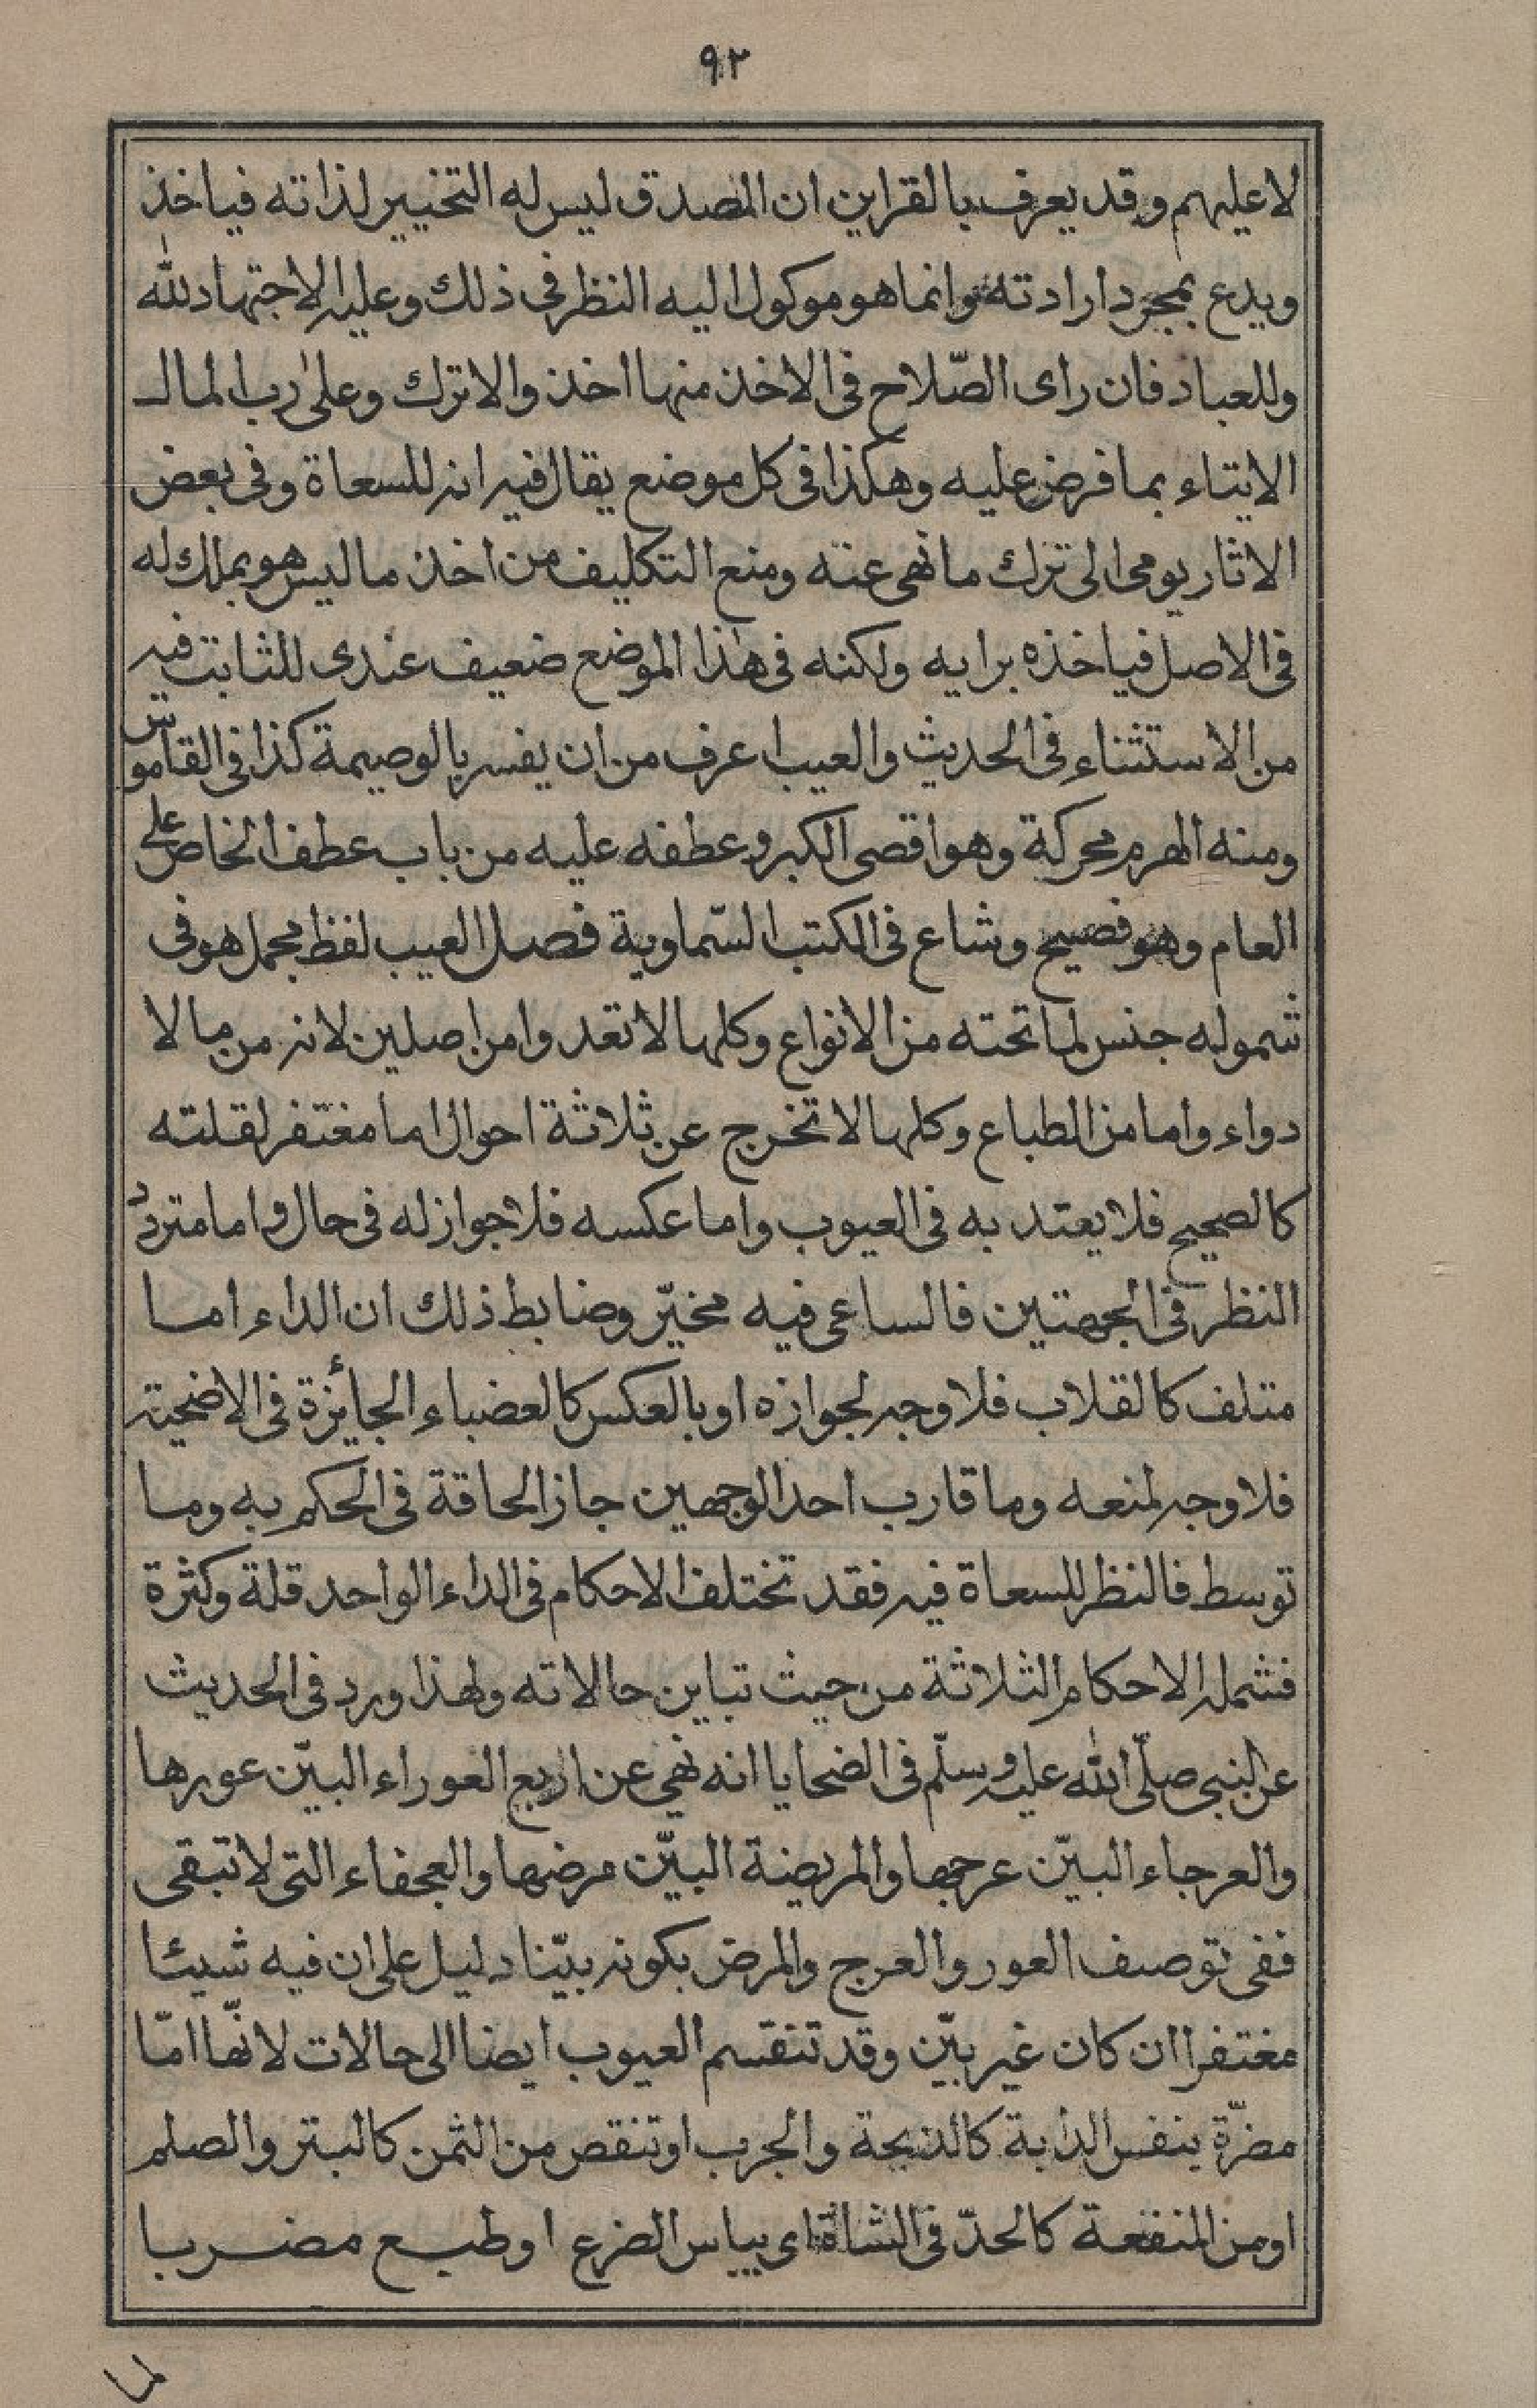 ٩٢
لا عليهم وقد يعرف بالقراين ان المصدق ليس له التخيير لذاته فياخذ
ويدع بمجرد ارادته وانما هو موكول اليه النظر فى ذلك وعليه الاجتهاد لله
وللعباد فان راى الصّلاح فى الاخذ منها اخذ والا ترك وعلى رب المال
الايتاء بما فرض عليه وهكذا فى كل موضع يقال فيه انه للسعاة وفى بعض
الاثار يومى الى ترك ما نهى عنه ومنع التكليف من اخذ ما ليس هو بملك له
فى الاصل فياخذه برايه ولكنه فى هذا الموضع ضعيف عندى للثابت فيه
من الاستثناء فى الحديث والعيب اعرف من ان يفسر بالوصيمة كذا فى القاموس
ومنه الهرم محركة وهو اقصى الكبر وعطفه عليه من باب عطف الخاص على
العام وهو فصيح وشاع فى الكتب السّماوية فصل العيب لفظ مجمل هو فى
شموله جنس لما تحته من الانواع وكلها لا تعدوا من اصلين لانه من ما لا
دواء واما من الطباع وكلها لا تخرج عن ثلاثة احوال اما مغتفر لقلته
كالصحيح فلا يعتد به فى العيوب واما عكسه فلا جواز له فى حال واما متردد
النظر فى الجهتين فالساعى فيه مخيّر وضابط ذلك ان الداء اما
متلف كالقلاب فلا وجه لجوازه او بالعكس كالعضباء الجائزة فى الاضحية
فلا وجه لمنعه وما قارب احد الوجهين جاز الحاقة فى الحكم به وما
توسط فالنظر للسعاة فيه فقد تختلف الاحكام فى الداء الواحد قلة وكثرة
فشمله الاحكام الثلاثة من حيث تباين حالاته ولهذا ورد فى الحديث
عن النبى صلّى الله عليه وسلّم فى الضحايا انه نهى عن اربع العوراء البيّن عورها
والعرجاء البيّن عرجها والمريضة البيّن مرضها والعجفاء التى لا تبقى
ففى توصيف العور والعرج والمرض بكونه بيّنا دليل على ان فيه شيئا
مغتفرا ان كان غير بيّن وقد تنقسم العيوب ايضا الى حالات لانّها امّا
مضرّة بنفس الدابة كالذبحة والجرب او تنقص من الثمن كالبتر والصلم
او من المنفعة كالحدّ فى الشاة اى يباس الضرع او طبع مضر با
لما